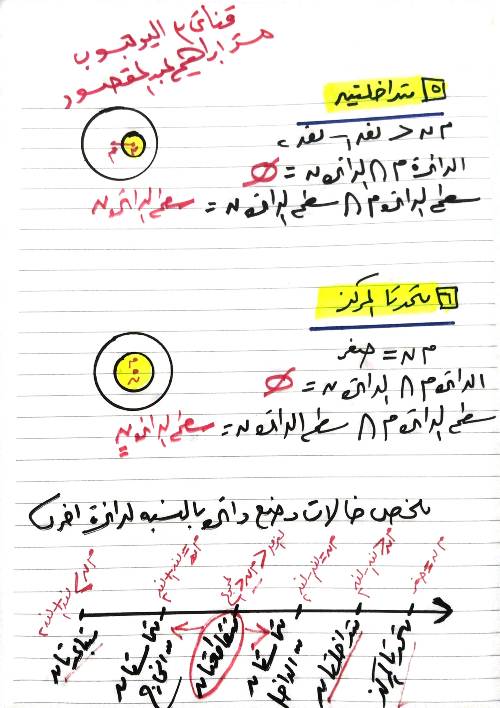 قناتى ع اليوتيوب
مستر ابراهيم عبد المقصود
٥ متداخلتين
م ن < نق١ - نق٢
الدائرة م ∩ الدائرة ن = ∅
سطح الدائرة م ∩ سطح الدائرة ن = سطح الدائرة ن
م
ن
٦ متحدتا المركز
م ن = صفر
الدائرة م ∩ الدائرة ن = ∅
سطح الدائرة م ∩ سطح الدائرة ن = سطح الدائرة ن
م
ن
ملخص حالات وضع دائرة بالنسبه لدائرة اخرى
م ن = صفر
متباعدتان
متماستان من الخارج
متقاطعتان
متماستان من الداخل
متداخلتان
متحدتا المركز